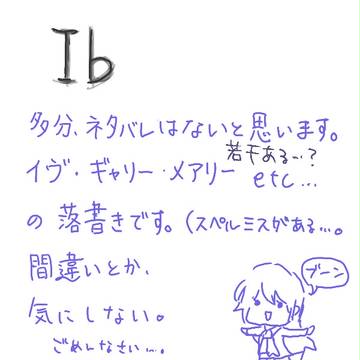 Ib
多分、ネタバレはないと思います。
若干ある…?
イヴ・ギャリー・メアリー etc...
の落書きです。(スペルミスがある…。
間違いとか、
ブーン
気にしない。
ごめんなさい…。